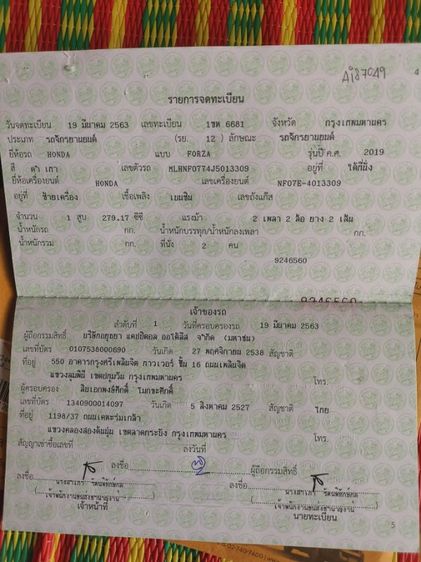 Ai87049
4
รายการจดทะเบียน
วันจดทะเบียน 19 มีนาคม 2563 เลขทะเบียน 1ขด 6681 จังหวัด กรุงเทพมหานคร
ประเภท รถจักรยานยนต์ (รย. 12 ) ลักษณะ รถจักรยานยนต์
ยี่ห้อรถ HONDA แบบ FORZA รุ่นปี ค.ศ. 2019
สี ดำ เทา เลขตัวรถ MLHNF0774J5013309 อยู่ที่ ใต้ที่นั่ง
ยี่ห้อเครื่องยนต์ HONDA เลขเครื่องยนต์ NF07E-4013309
อยู่ที่ ซ้ายเครื่อง เชื้อเพลิง เบนซิน เลขถังแก๊ส
จำนวน 1 สูบ 279.17 ซีซี แรงม้า 2 เพลา 2 ล้อ ยาง 2 เส้น
น้ำหนักรถ กก. น้ำหนักบรรทุก/น้ำหนักลงเพลา กก.
น้ำหนักรวม กก. ที่นั่ง 2 คน
9246560
9246560
เจ้าของรถ
ลำดับที่ 1 วันที่ครอบครองรถ 19 มีนาคม 2563
ผู้ถือกรรมสิทธิ์ บริษัทอยุธยา แคปปิตอล ออโต้ลีส จำกัด (มหาชน)
เลขที่บัตร 0107538000690 วันเกิด 27 พฤศจิกายน 2538 สัญชาติ
ที่อยู่ 550 อาคารกรุงศรีเพลินจิต ทาวเวอร์ ชั้น 16 ถนนเพลินจิต
แขวงลุมพินี เขตปทุมวัน กรุงเทพมหานคร โทร.
ผู้ครอบครอง
เลขที่บัตร 1340900014097 วันเกิด 5 สิงหาคม 2527 สัญชาติ ไทย
ที่อยู่ 1198/37 ถนนเคหะร่มเกล้า
แขวงคลองสองต้นนุ่น เขตลาดกระบัง กรุงเทพมหานคร โทร.
สัญญาเช่าซื้อเลขที่ ลงวันที่
ลงชื่อ ผู้ถือกรรมสิทธิ์
ลงชื่อ ลงชื่อ
เจ้าหน้าที่ นายทะเบียน
5